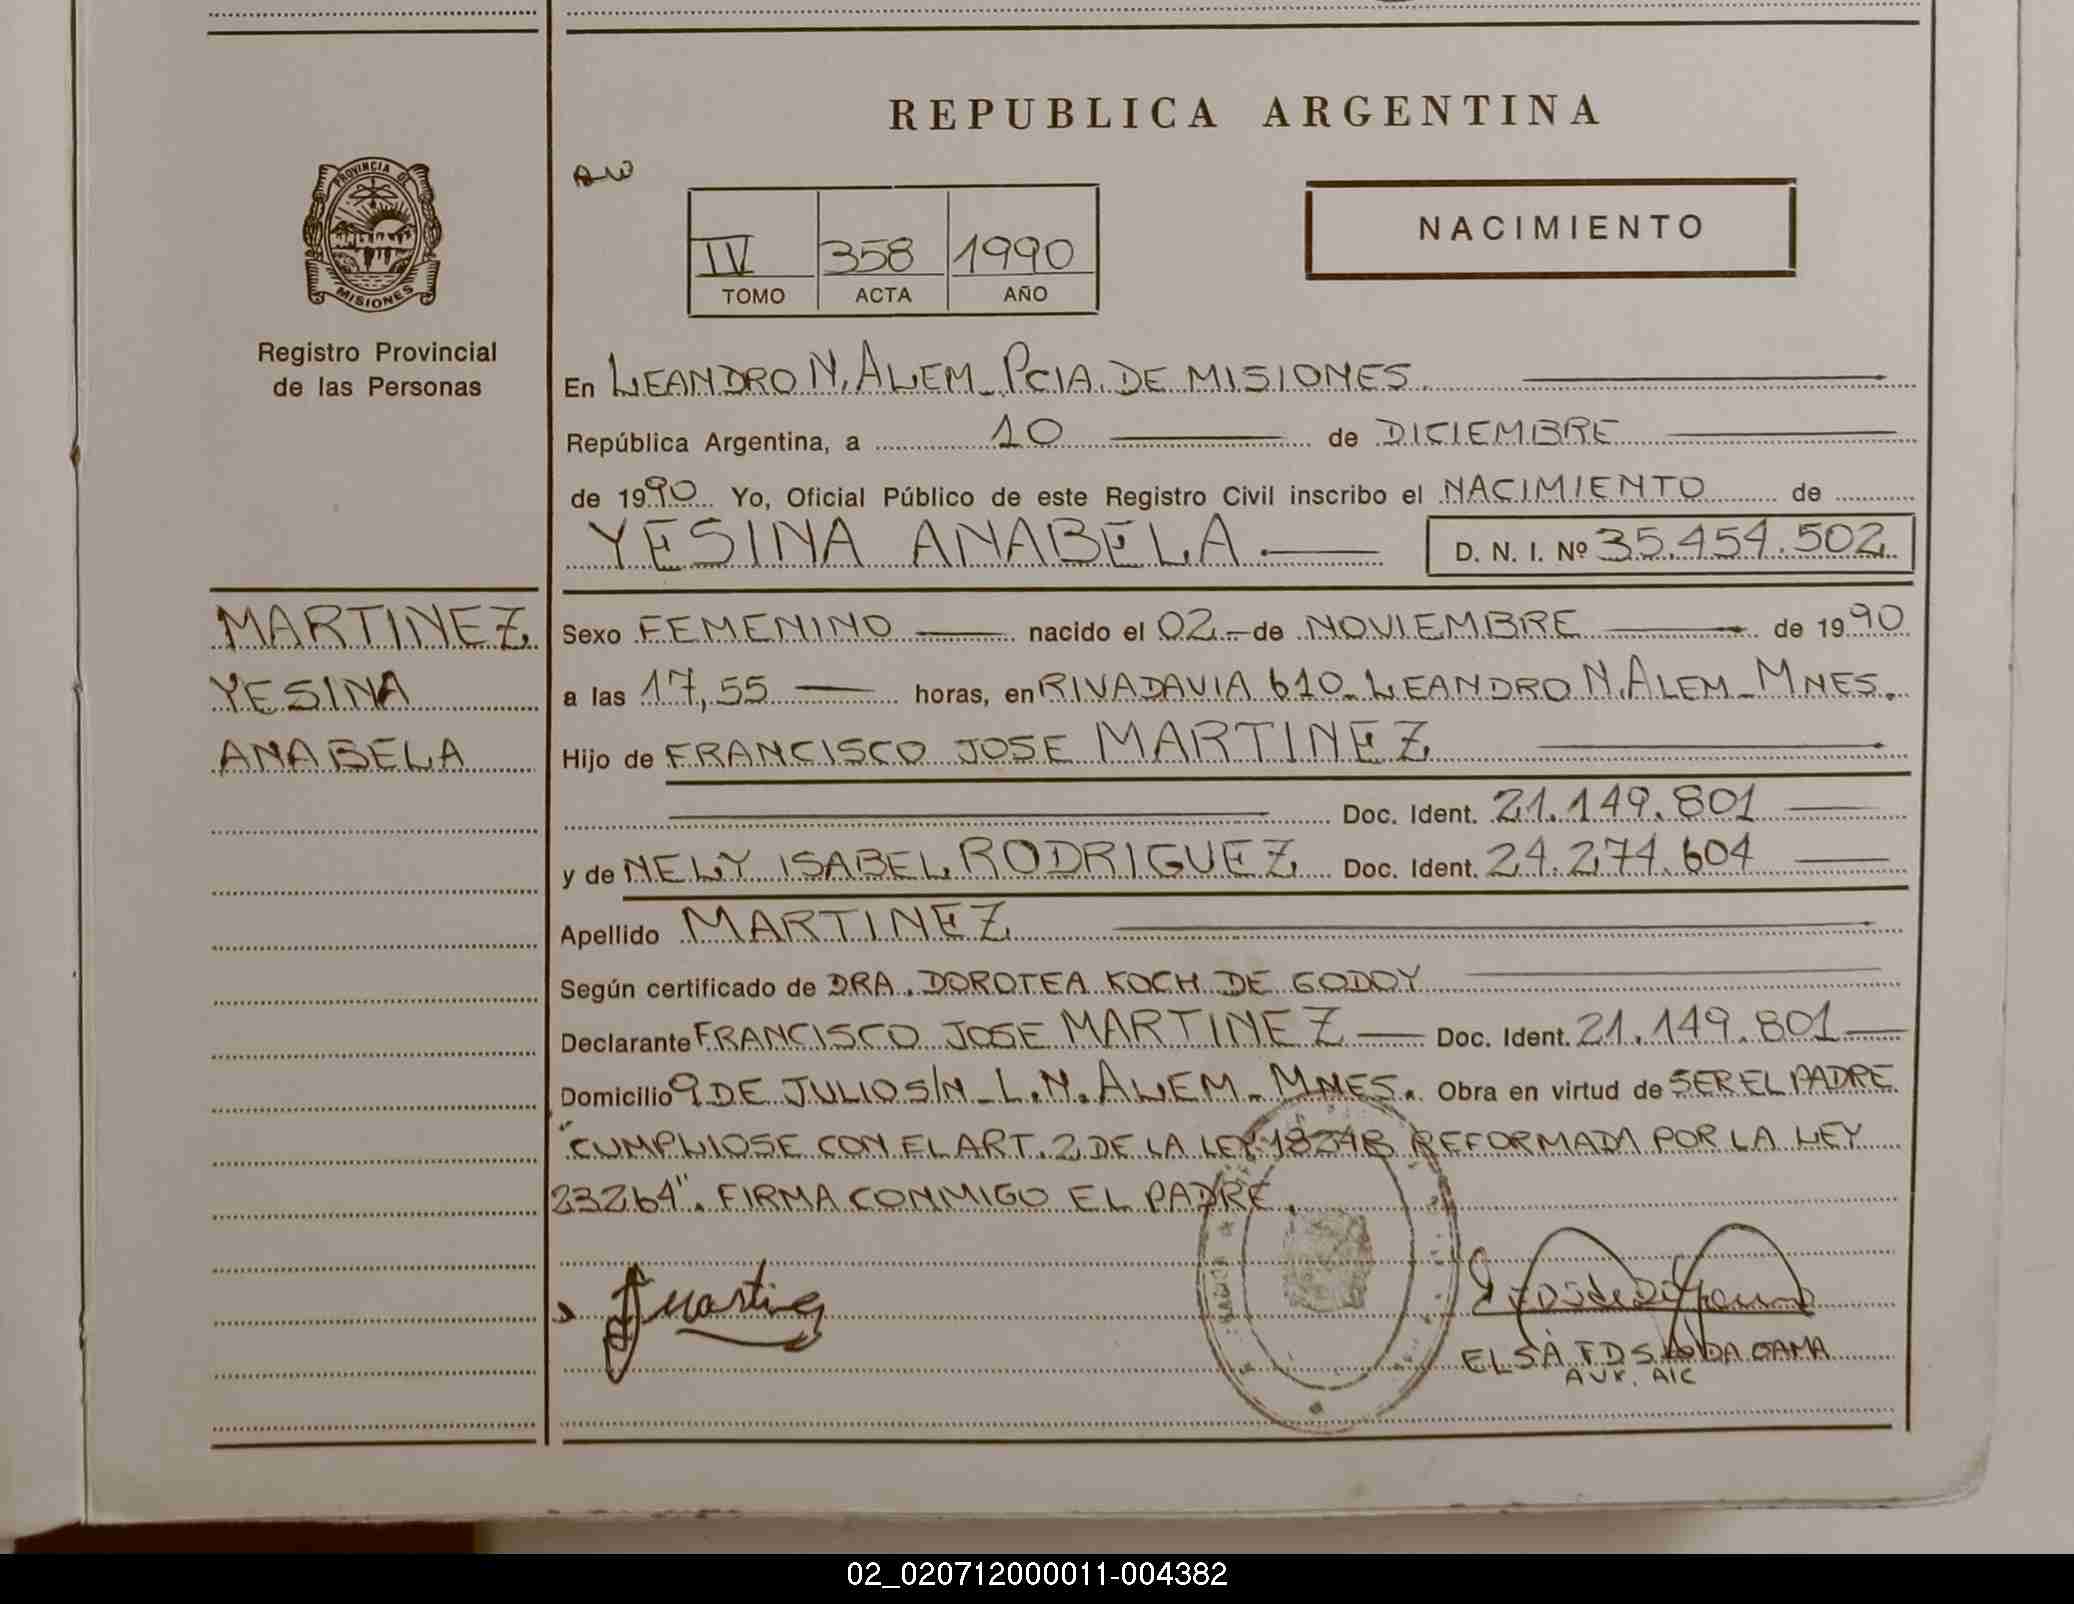 REPUBLICA ARGENTINA
PROVINCIA DE
MISIONES
Registro Provincial
de las Personas
IV 358 1990
TOMO ACTA AÑO
NACIMIENTO
En LEANDRO N. ALEM - PCIA. DE MISIONES
República Argentina, a 10 de DICIEMBRE
de 1990 Yo, Oficial Público de este Registro Civil inscribo el NACIMIENTO de
YESINA ANABELA. D. N. I. Nº 35.454.502
MARTINEZ
YESINA
ANABELA
Sexo FEMENINO nacido el 02 - de NOVIEMBRE de 1990
a las 17,55 horas, en RIVADAVIA 610 - LEANDRO N. ALEM - MNES.
Hijo de FRANCISCO JOSE MARTINEZ
Doc. Ident. 21.149.801
y de NELY ISABEL RODRIGUEZ Doc. Ident. 24.274.604
Apellido MARTINEZ
Según certificado de DRA. DOROTEA KOCH DE GODOY
Declarante FRANCISCO JOSE MARTINEZ Doc. Ident. 21.149.801
Domicilio 9 DE JULIO S/N - L.N. ALEM - MNES. Obra en virtud de SER EL PADRE
"CUMPLIOSE CON EL ART. 2 DE LA LEY 18248 REFORMADA POR LA LEY
23264". FIRMA CONMIGO EL PADRE.
ELSA DA GAMA
AUX.
02_020712000011-004382